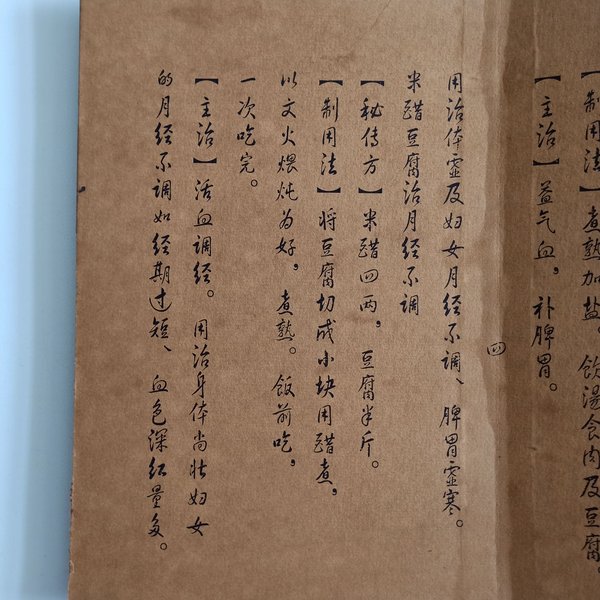 【制用法】煮熟加盐。饮汤食肉及豆腐。
【主治】益气血，补脾胃。
四
用治体虚及妇女月经不调、脾胃虚寒。
米醋豆腐治月经不调
【秘传方】米醋四两，豆腐半斤。
【制用法】将豆腐切成小块用醋煮，
以文火煨炖为好，煮熟。饭前吃，
一次吃完。
【主治】活血调经。用治身体尚壮妇女
的月经不调如经期过短、血色深红量多。